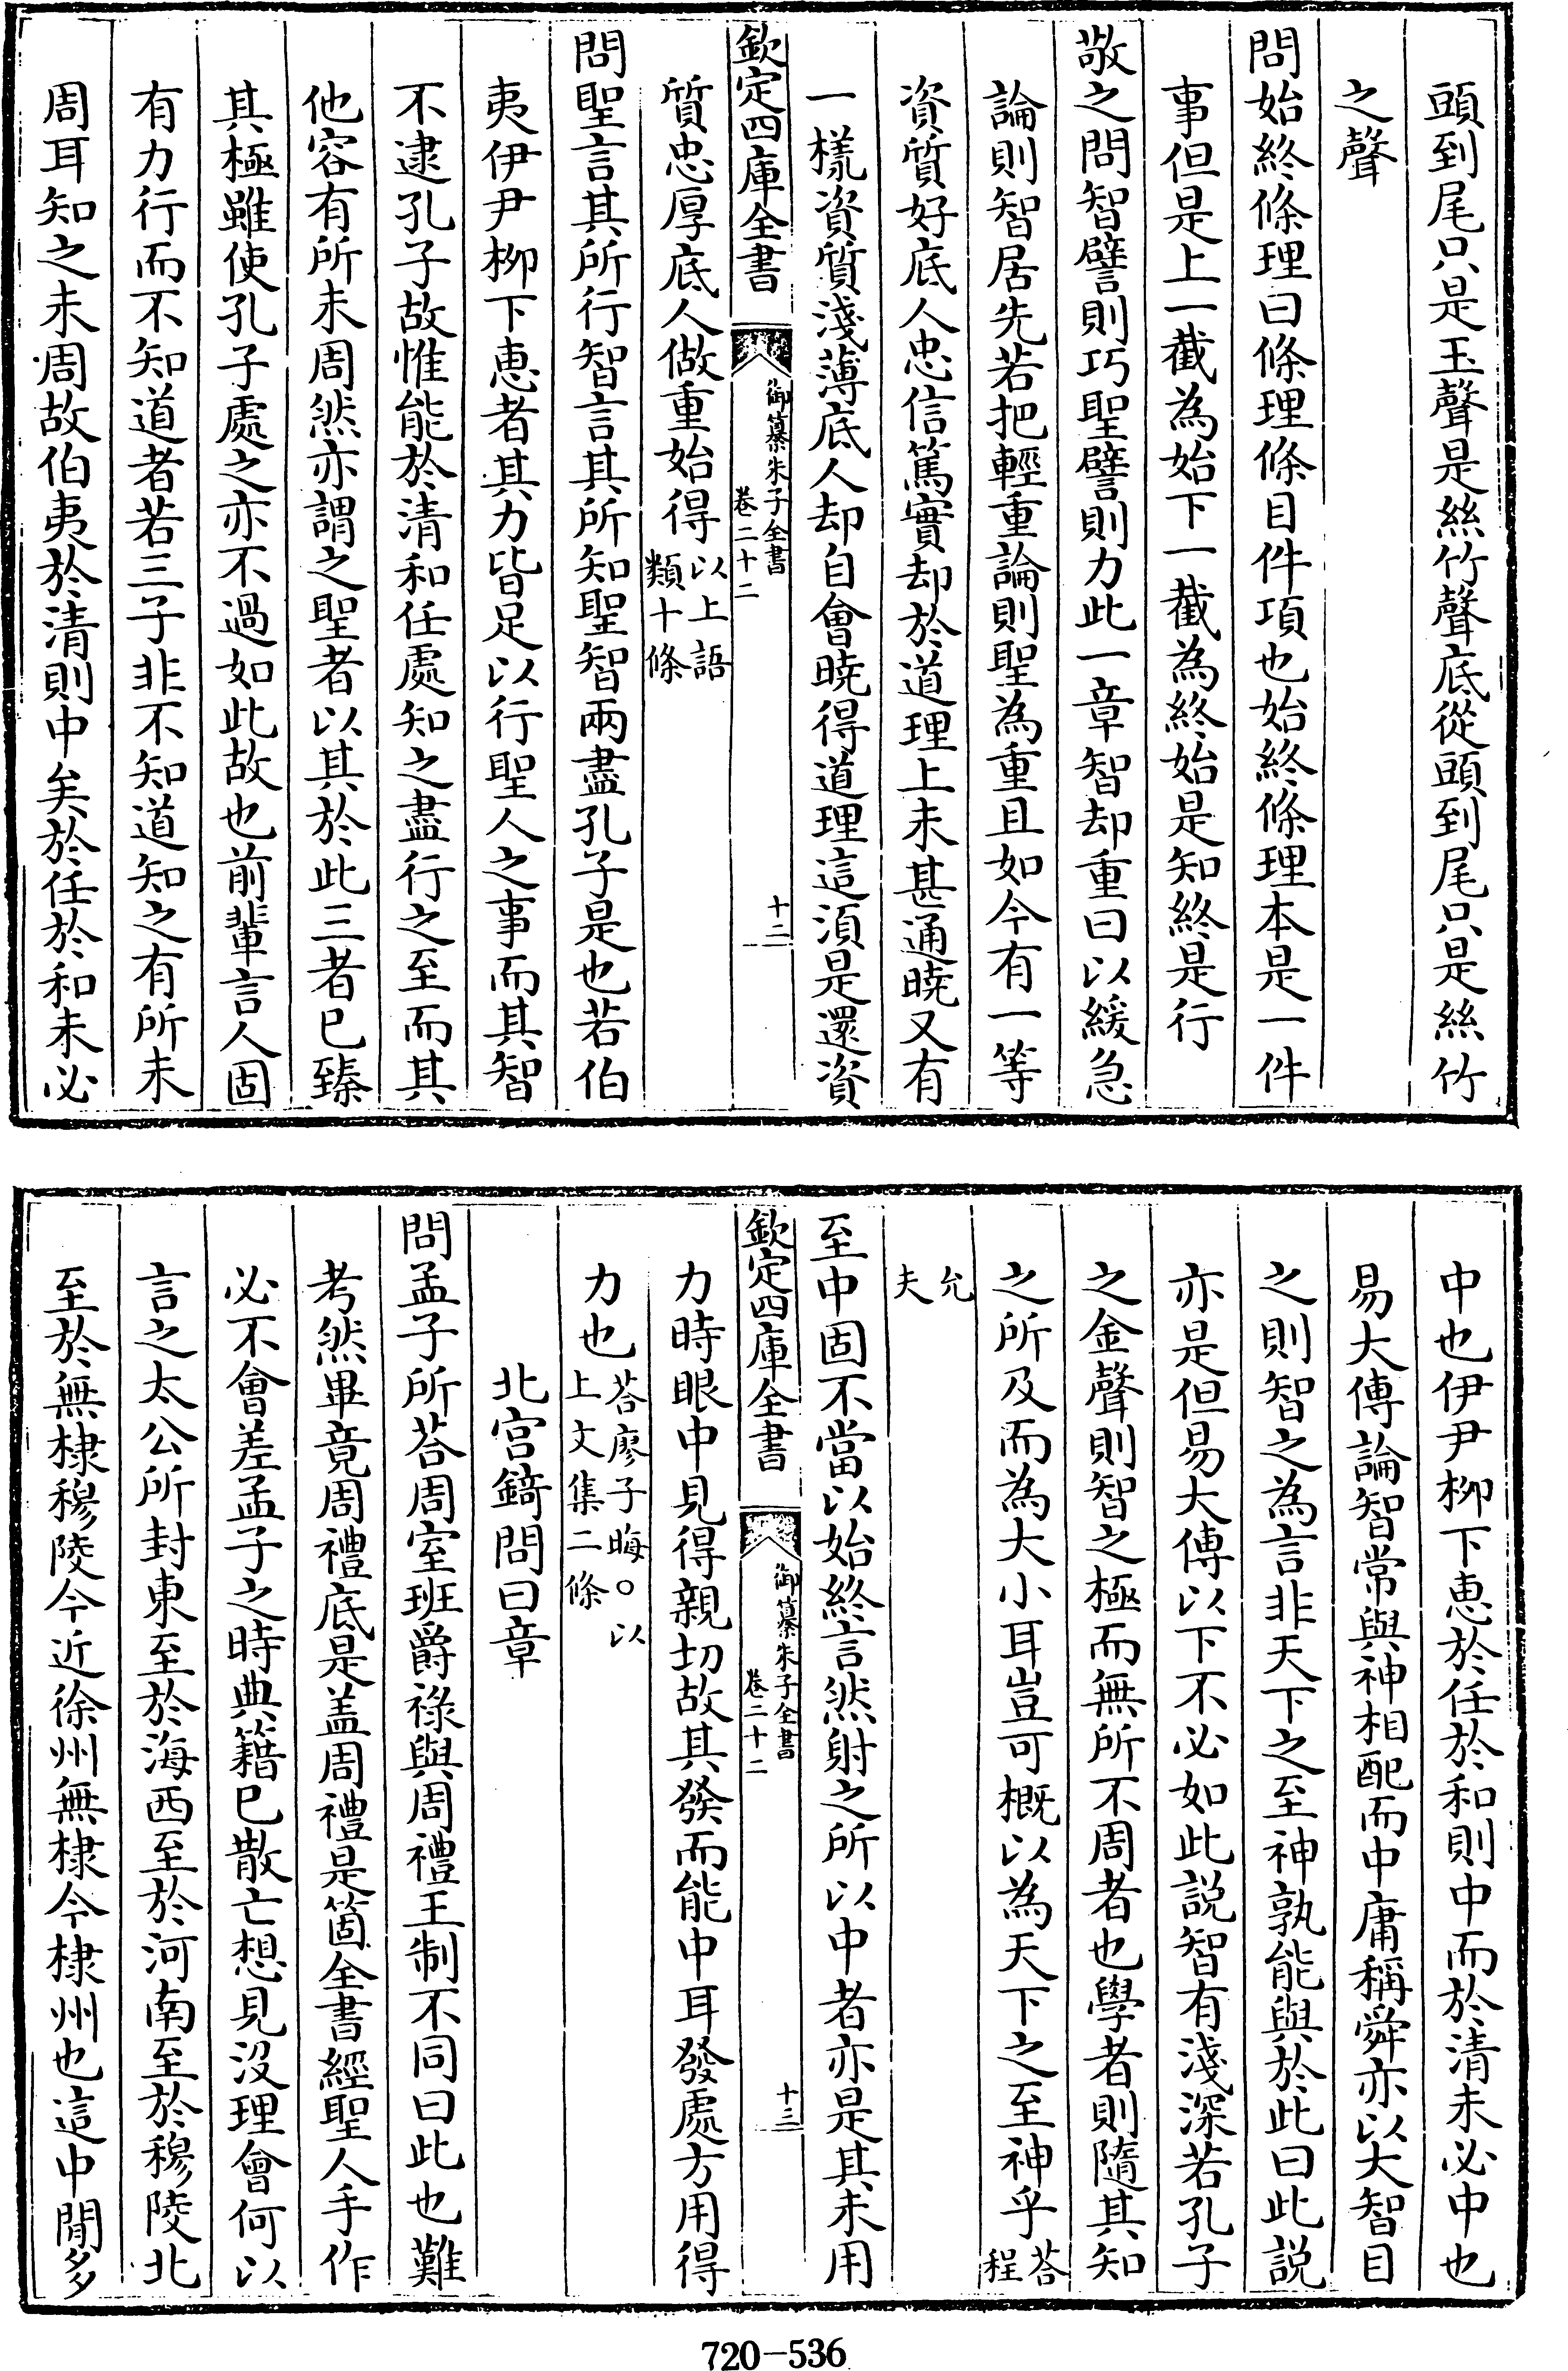 頭到尾只是玉聲是絲竹聲底從頭到尾只是絲竹
之聲
問始終條理曰條理條目件項也始終條理本是一件
事但是上一截為始下一截為終始是知終是行
敬之問智譬則巧聖譬則力此一章智却重曰以緩急
論則智居先若把輕重論則聖為重且如今有一等
資質好底人忠信篤實却於道理上未甚通曉又有
一樣資質淺薄底人却自會曉得道理這須是還資
欽定四庫全書
御纂朱子全書
卷二十二
十二
質忠厚底人做重始得以上語類十條
問聖言其所行智言其所知聖智兩盡孔子是也若伯
夷伊尹柳下惠者其力皆足以行聖人之事而其智
不逮孔子故惟能於清和任處知之盡行之至而其
他容有所未周然亦謂之聖者以其於此三者已臻
其極雖使孔子處之亦不過如此故也前輩言人固
有力行而不知道者若三子非不知道知之有所未
周耳知之未周故伯夷於清則中矣於任於和未必
中也伊尹柳下惠於任於和則中而於清未必中也
易大傳論智常與神相配而中庸稱舜亦以大智目
之則智之為言非天下之至神孰能與於此曰此說
亦是但易大傳以下不必如此說智有淺深若孔子
之金聲則智之極而無所不周者也學者則隨其知
之所及而為大小耳豈可概以為天下之至神乎荅程
允夫
至中固不當以始終言然射之所以中者亦是其未用
欽定四庫全書
御纂朱子全書
卷二十二
十三
力時眼中見得親切故其發而能中耳發處方用得
力也荅廖子晦○以上文集二條
北宮錡問曰章
問孟子所荅周室班爵祿與周禮王制不同曰此也難
考然畢竟周禮底是盖周禮是箇全書經聖人手作
必不會差孟子之時典籍已散亡想見沒理會何以
言之太公所封東至於海西至於河南至於穆陵北
至於無棣穆陵今近徐州無棣今棣州也這中閒多
720-536